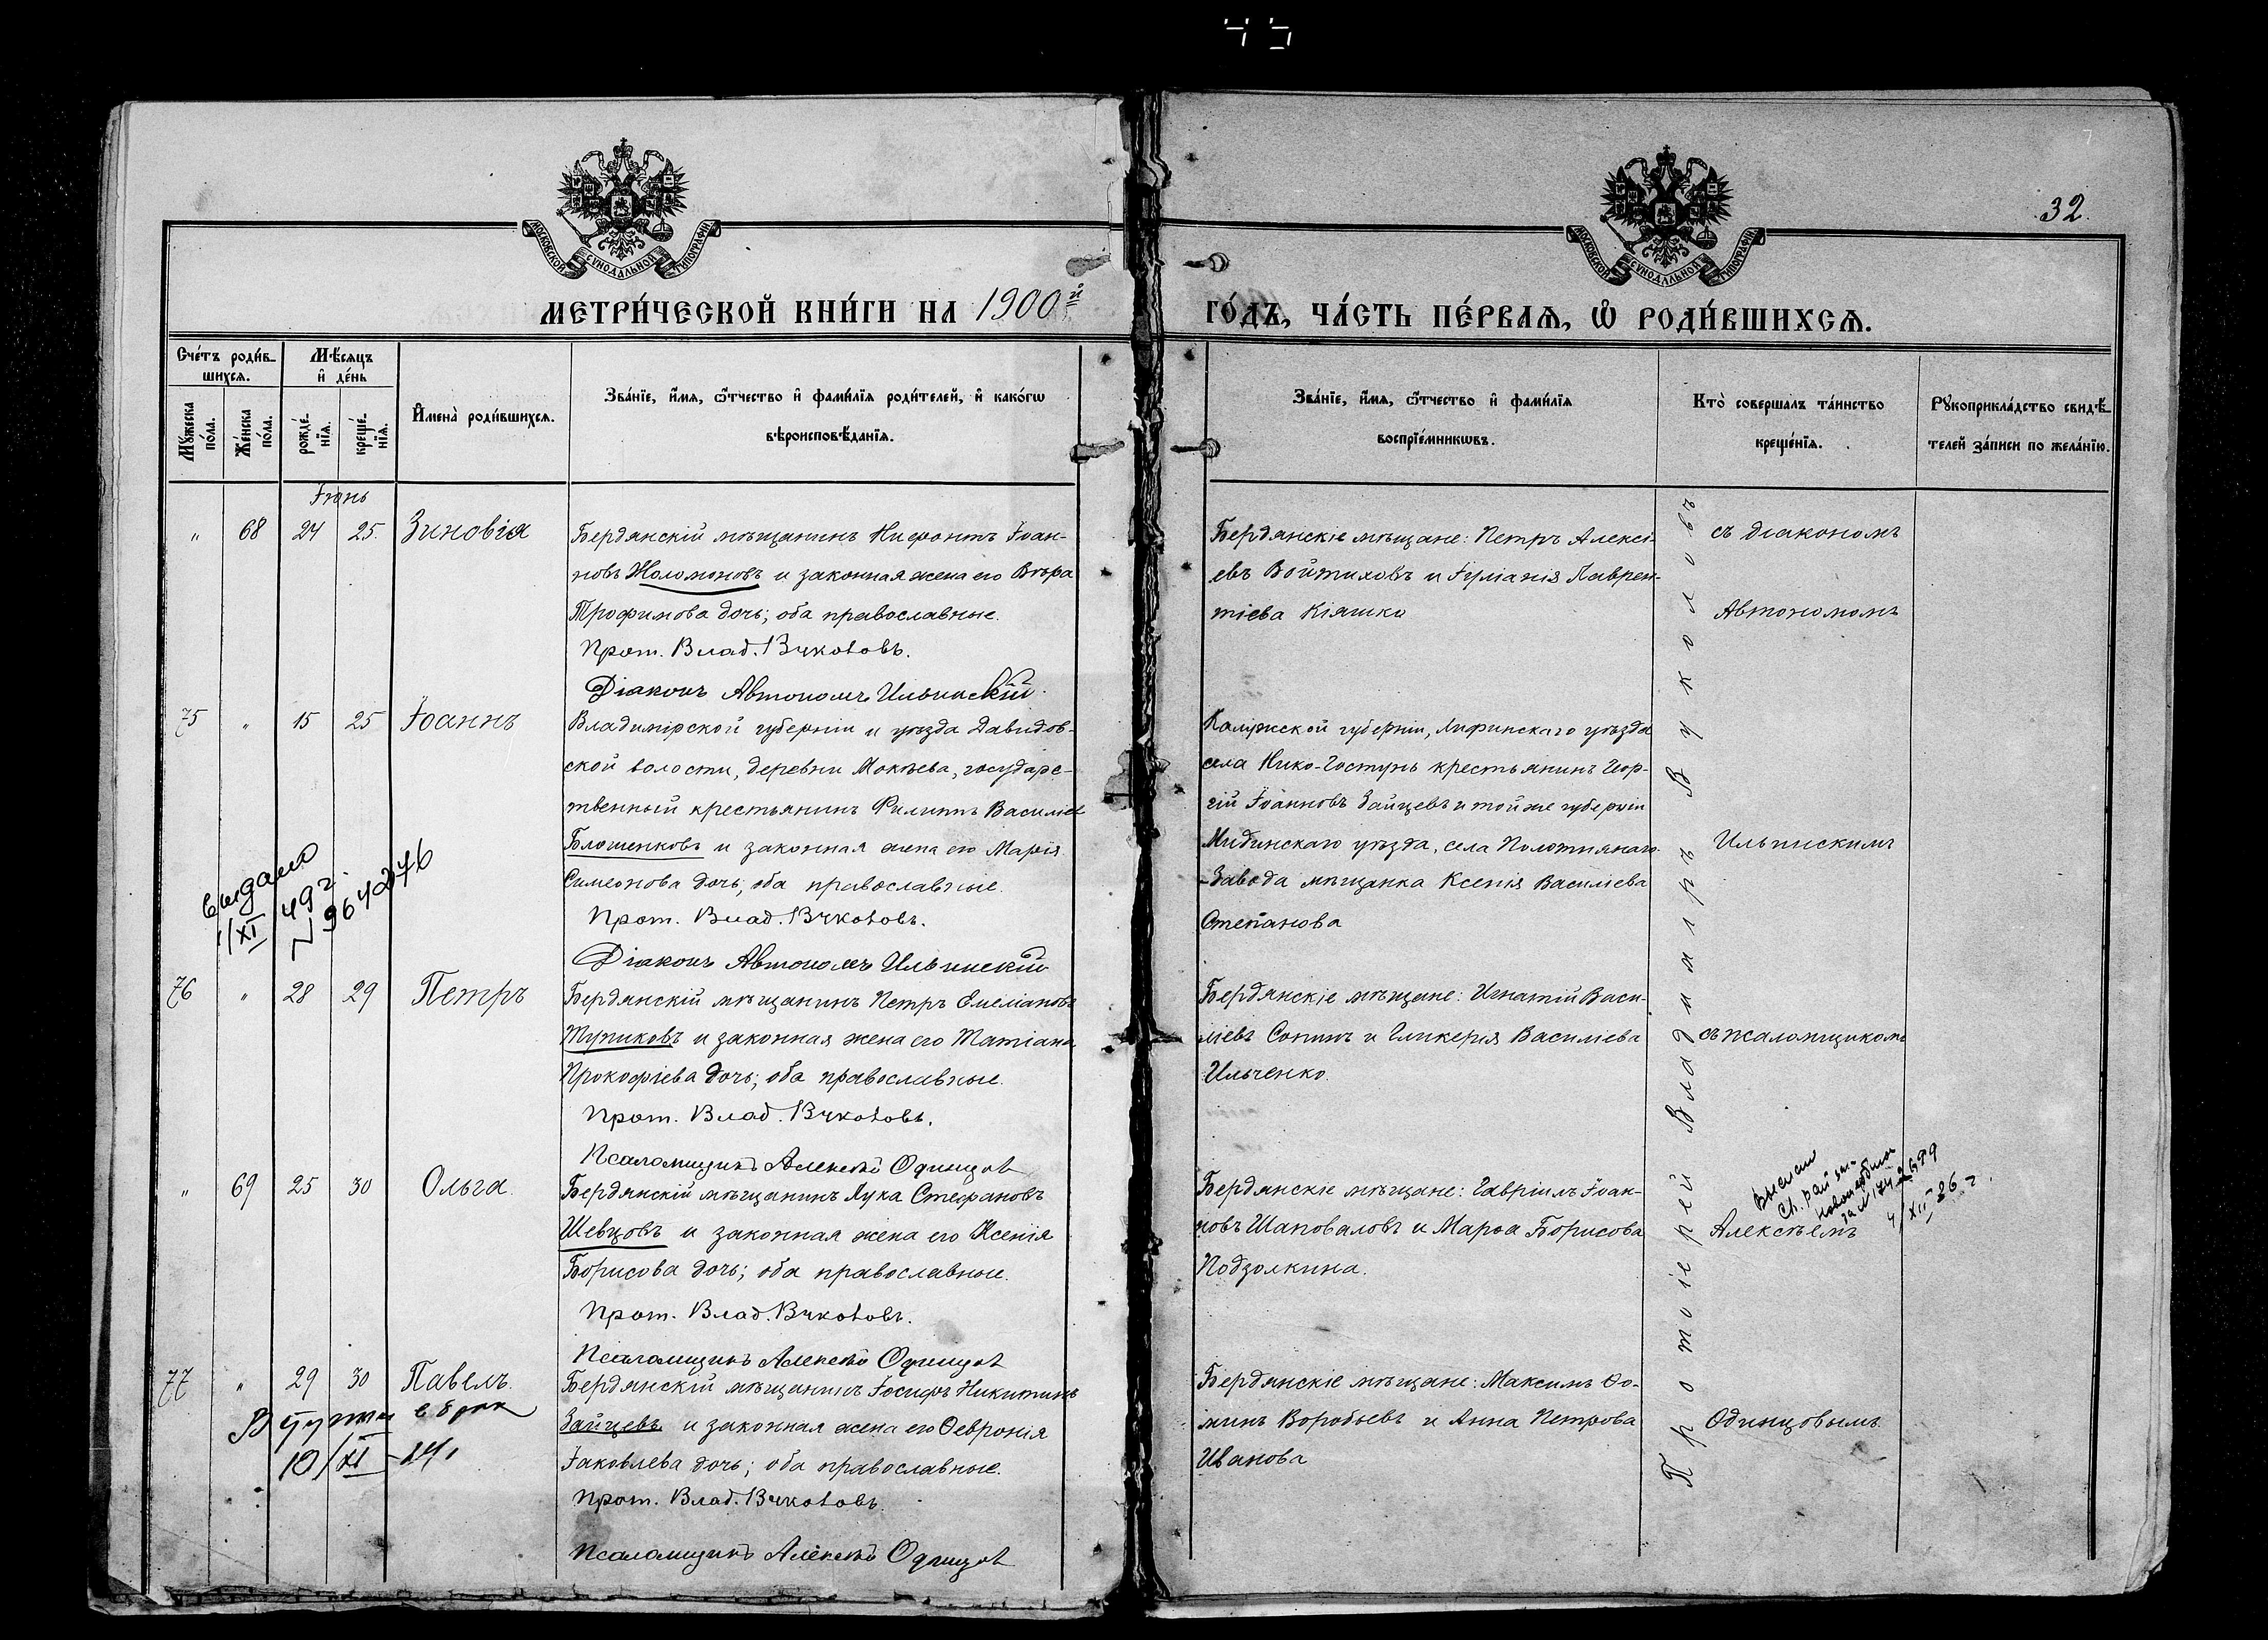 32.
МОСКОВСКОЙ СѴНОДАЛЬНОЙ ТИПОГРАФІИ
МОСКОВСКОЙ СѴНОДАЛЬНОЙ ТИПОГРАФІИ
МЕТРИ́ЧЕСКОЙ КНИ́ГИ НА 1900й
ГО́ДЪ, ЧА́СТЬ ПЕ́РВАѦ, Ѽ РОДИ́ВШИХСѦ.
Сче́тъ роди́в-
шихсѧ.
Мѣ́сѧцъ
и҆ де́нь
Мꙋ́жеска по́ла.
Же́нска по́ла.
рожде́-нїѧ.
креще́-нїѧ.
И҆мена̀ роди́вшихсѧ.
Зва́нїе, и҆́мѧ, ѻ҆́тчество и҆ фами́лїѧ роди́телей, и҆ како́гѡ
вѣроисповѣ́данїѧ.
Зва́нїе, и҆́мѧ, ѻ҆́тчество и҆ фами́лїѧ
воспрїе́мникѡвъ.
Кто̀ соверша́лъ та́инство
креще́нїѧ.
Рꙋкоприкла́дство свидѣ́-
телей за́писи по жела́нїю.
Іюнь
" 68 24 25. Зиновія
Бердянскій мѣщанинъ Нифонтъ Іоан-
новъ Жоломоновъ и законная жена его Вѣра
Трофимова дочь; оба православные.
Прот. Влад. Вуколовъ.
Діаконъ Автономъ Ильинскій.
Бердянскіе мѣщане: Петръ Алексі-
евъ Войтиховъ и Іуліанія Лаврен-
тіева Кіяшко
съ діакономъ
Автономомъ
75 " 15 25 Іоаннъ
Владимірской губерніи и уѣзда Давидов-
ской волости, деревни Мокѣева, государс-
твенный крестьянинъ Филиппъ Василіев
Блошенковъ и законная жена его Марія
Симеонова дочь; оба православные.
Прот. Влад. Вуколовъ.
Діаконъ Автономъ Ильинскій
Калужской губерніи, Лифинскаго уѣзда
села Нико-Гостунь крестьянинъ Геор-
гій Іоанновъ Зайцевъ и той же губерніи
Мидинскаго уѣзда, села Полотнянаго-
-Завода мѣщанка Ксенія Василіева
Степанова
Ильинскимъ
выдано
1/XI 49 г.
76 " 28 29 Петръ
Бердянскій мѣщанинъ Петръ Емеліановъ
Тупиковъ и законная жена его Татіана
Прокофіева дочь; оба православные.
Прот. Влад. Вуколовъ.
Псаломщикъ Алексѣй Одинцов
Бердянскіе мѣщане: Игнатій Васи-
ліевъ Сопинъ и Гликерія Василіева
Ильченко.
съ псаломщикомъ
" 69 25 30 Ольга.
Бердянскій мѣщанинъ Лука Стефановъ
Шевцовъ и законная жена его Ксенія
Борисова дочь; оба православные.
Прот. Влад. Вуколовъ.
Псаломщикъ Алексѣй Одинцов
Бердянскіе мѣщане: Гавріилъ Іоан-
новъ Шаповаловъ и Марѳа Борисова
Подзолкина.
Алексѣемъ
77 " 29 30 Павелъ.
Бердянскій мѣщанинъ Іосифъ Никитинъ
Зайцевъ и законная жена его Ѳевронія
Іаковлева дочь; оба православные.
Прот. Влад. Вуколовъ.
Псаломщикъ Алексѣй Одинцов
Бердянскіе мѣщане: Максимъ Ѳо-
минъ Воробьевъ и Анна Петрова
Иванова
Одинцовымъ.
10/XI
Протоіерей Владиміръ Вуколовъ